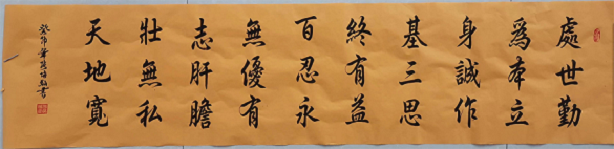 處世勤
為本立
身誠作
基三思
終有益
百忍永
無優有
志肝膽
壯無私
天地寬